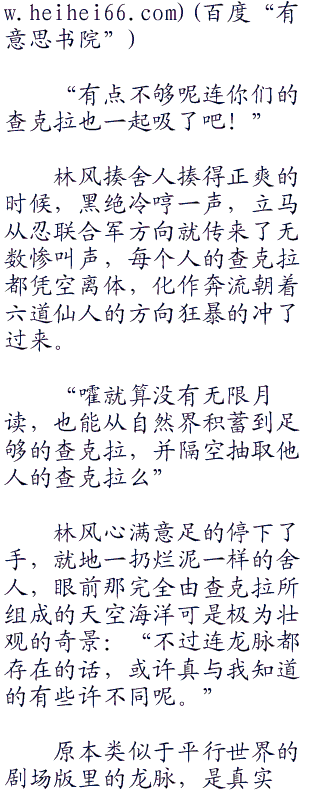 w.heihei66.com)(百度“有
意思书院”)
“有点不够呢连你们的
查克拉也一起吸了吧！”
林风揍舍人揍得正爽的
时候，黑绝冷哼一声，立马
从忍联合军方向就传来了无
数惨叫声，每个人的查克拉
都凭空离体，化作奔流朝着
六道仙人的方向狂暴的冲了
过来。
“嚯就算没有无限月
读，也能从自然界积蓄到足
够的查克拉，并隔空抽取他
人的查克拉么”
林风心满意足的停下了
手，就地一扔烂泥一样的舍
人，眼前那完全由查克拉所
组成的天空海洋可是极为壮
观的奇景：“不过连龙脉都
存在的话，或许真与我知道
的有些许不同呢。”
原本类似于平行世界的
剧场版里的龙脉，是真实